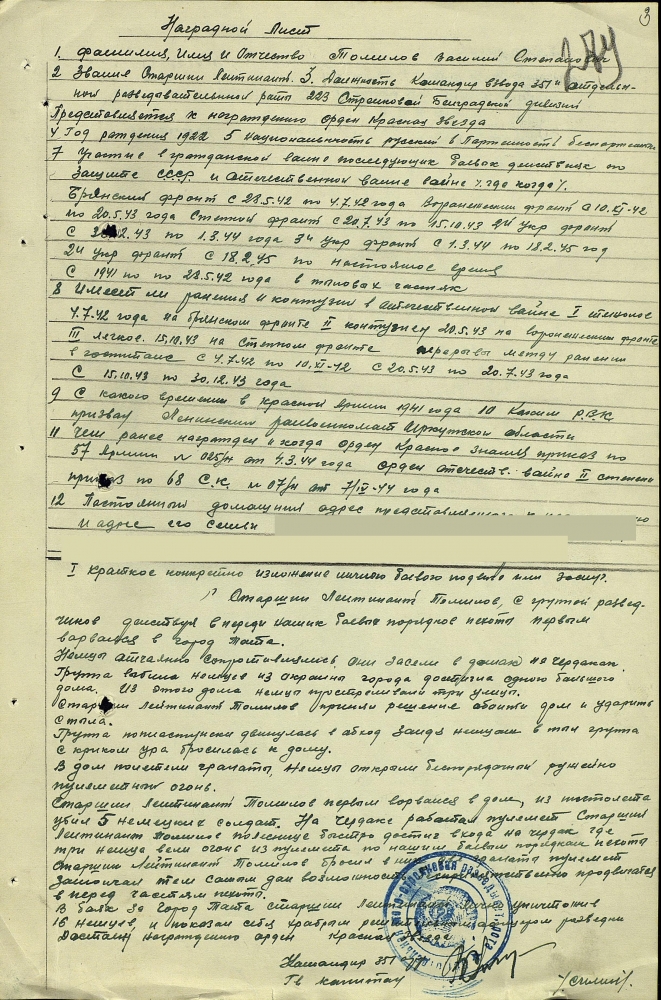 3
274
Наградной Лист
1. Фамилия, Имя и Отчество Томилов Василий Степанович
2 Звание Старший Лейтинант. 3. Должность Командир взвода 351й отдель-
ной разведовательной роты 223 Стрелковой Белградской дивизии
Представляется к награждению орден Красная Звезда
4 Год рождения 1922 5 национальность русский 6 Партейность беспартейный
7 Участие в гражданской войне последующих боевых действиях по
защите СССР и отечественной войне /: где когда /:
Брянский фронт с 28.5.42 по 4.7.42 года Воронежский фронт с 10.XI-42
по 20.5.43 года Степной фронт с 20.7.43 по 15.10.43 2й укр фронт
с 2.43 по 1.3.44 года 3й укр фронт с 1.3.44 по 18.2.45 год
2й укр фронт с 18.2.45 по настоящее время
с 1941 по по 28.5.42 года в тыловых частях
8 Имеет ли ранения и контузии в отечественной войне I тяжолое
4.7.42 года на брянском фронте II контузия 20.5.43 на воронежском фронте
III легкое. 15.10.43 на Степном фронте перерывы между ранении
в госпитале с 4.7.42 по 10.XI-42 с 20.5.43 по 20.7.43 года
с 15.10.43 по 30.12.43 года
9 С какого времени в красной армии 1941 года 10 Каким Р.В.К.
призван Ленинским райвоенкомат Иркутской области
11 Чем ранее награжден и когда орден Красное знамя приказ по
57 Армии № 025/н от 4.3.44 года орден отечеств. войны II степени
приказ по 68 С.К. № 07/н от 7/IV-44 года
12 Постоянный домашний адрес представляемого к
и адрес его семьи
I Краткое конкретно изложение личного боевого подвига или заслуг.
Старший Лейтинант Томилов, с групой развед-
чиков действуя впереди наших боевых порядков пехоты первым
ворвался в город Тата.
Немцы отчаянно сопротивлялись. они засели в домах на чердаках.
Група выбила немцев из окраины города достигла одного большого
дома. Из этого дома немцы простреливали три улицы.
Старший Лейтинант Томилов принял решение обойти дом и ударить
с тыла.
Група попластунски двинулась в обход Зайдя немцам в тыл група
с криком ура бросилась к дому.
В дом полетели гранаты, Немцы открыли беспорядочный ружейно
пулеметный огонь.
Старший Лейтинант Томилов первым ворвался в дом, из пистолета
убил 5 немецких солдат. На чердаке работал пулемет Старший
Лейтинант Томилов по лестнице быстро достиг входа на чердак где
три немца вели огонь из пулемета по нашим боевым порядкам пехоты
Старший Лейтинант Томилов бросил в них граната пулемет
замолчал тем самым дал возможность продвигатся
в перед частям пехоты.
В боях за город Тата старший Лейтинант лично уничтожив
16 немцев, и показал себя храбрым командиром разведки
Достоин награждению орден Красная Звезда
Командир 351
Гв капитан